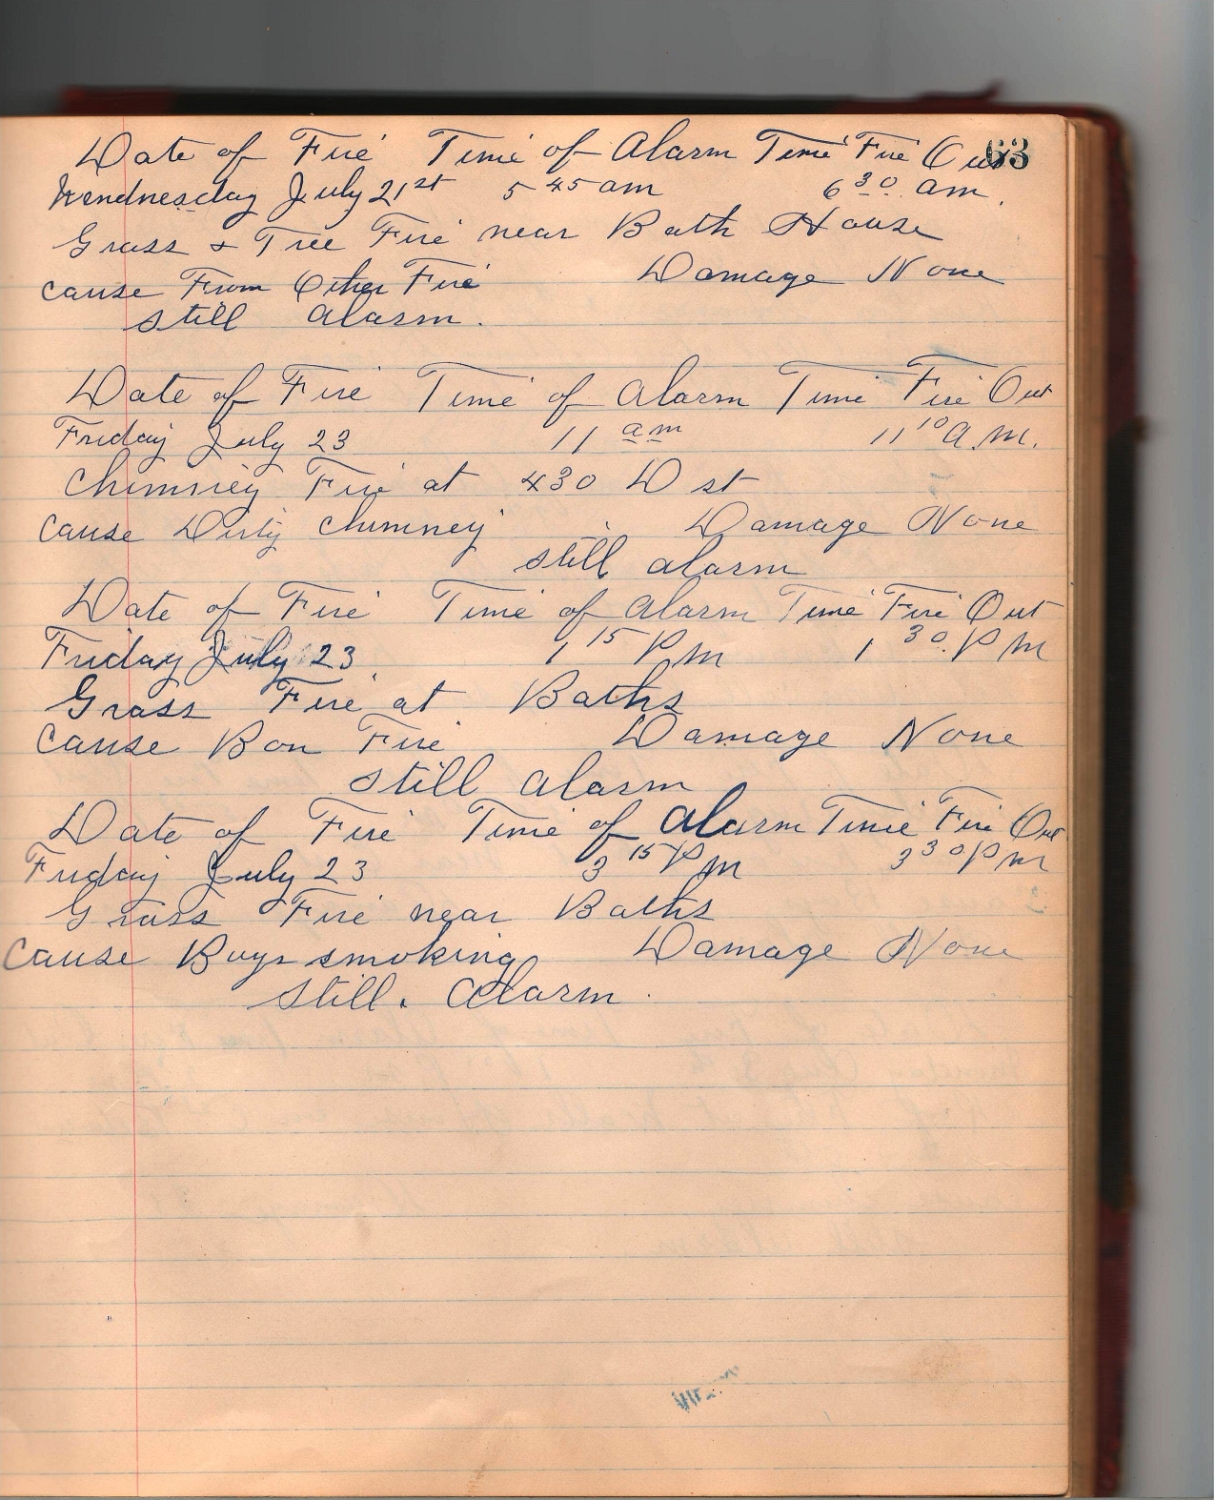 63
Date of Fire Time of Alarm Time Fire Out
Wendnesday July 21st 5 45 am 6 30 am.
Grass & Tree Fire near Bath House
Cause From Other Fire Damage None
still alarm.
Date of Fire Time of Alarm Time Fire Out
Friday July 23 11 am 11 10 a.m.
Chimney Fire at 430 D st
Cause Dirty Chimney Damage None
still alarm
Date of Fire Time of Alarm Time Fire Out
Friday July 23 1 15 Pm 1 30. Pm
Grass Fire at Baths
Cause Bon Fire Damage None
still alarm
Date of Fire Time of Alarm Time Fire Out
Friday July 23 3 15 Pm 3 30 Pm
Grass Fire near Baths
Cause Boys smoking Damage None
Still. Alarm.